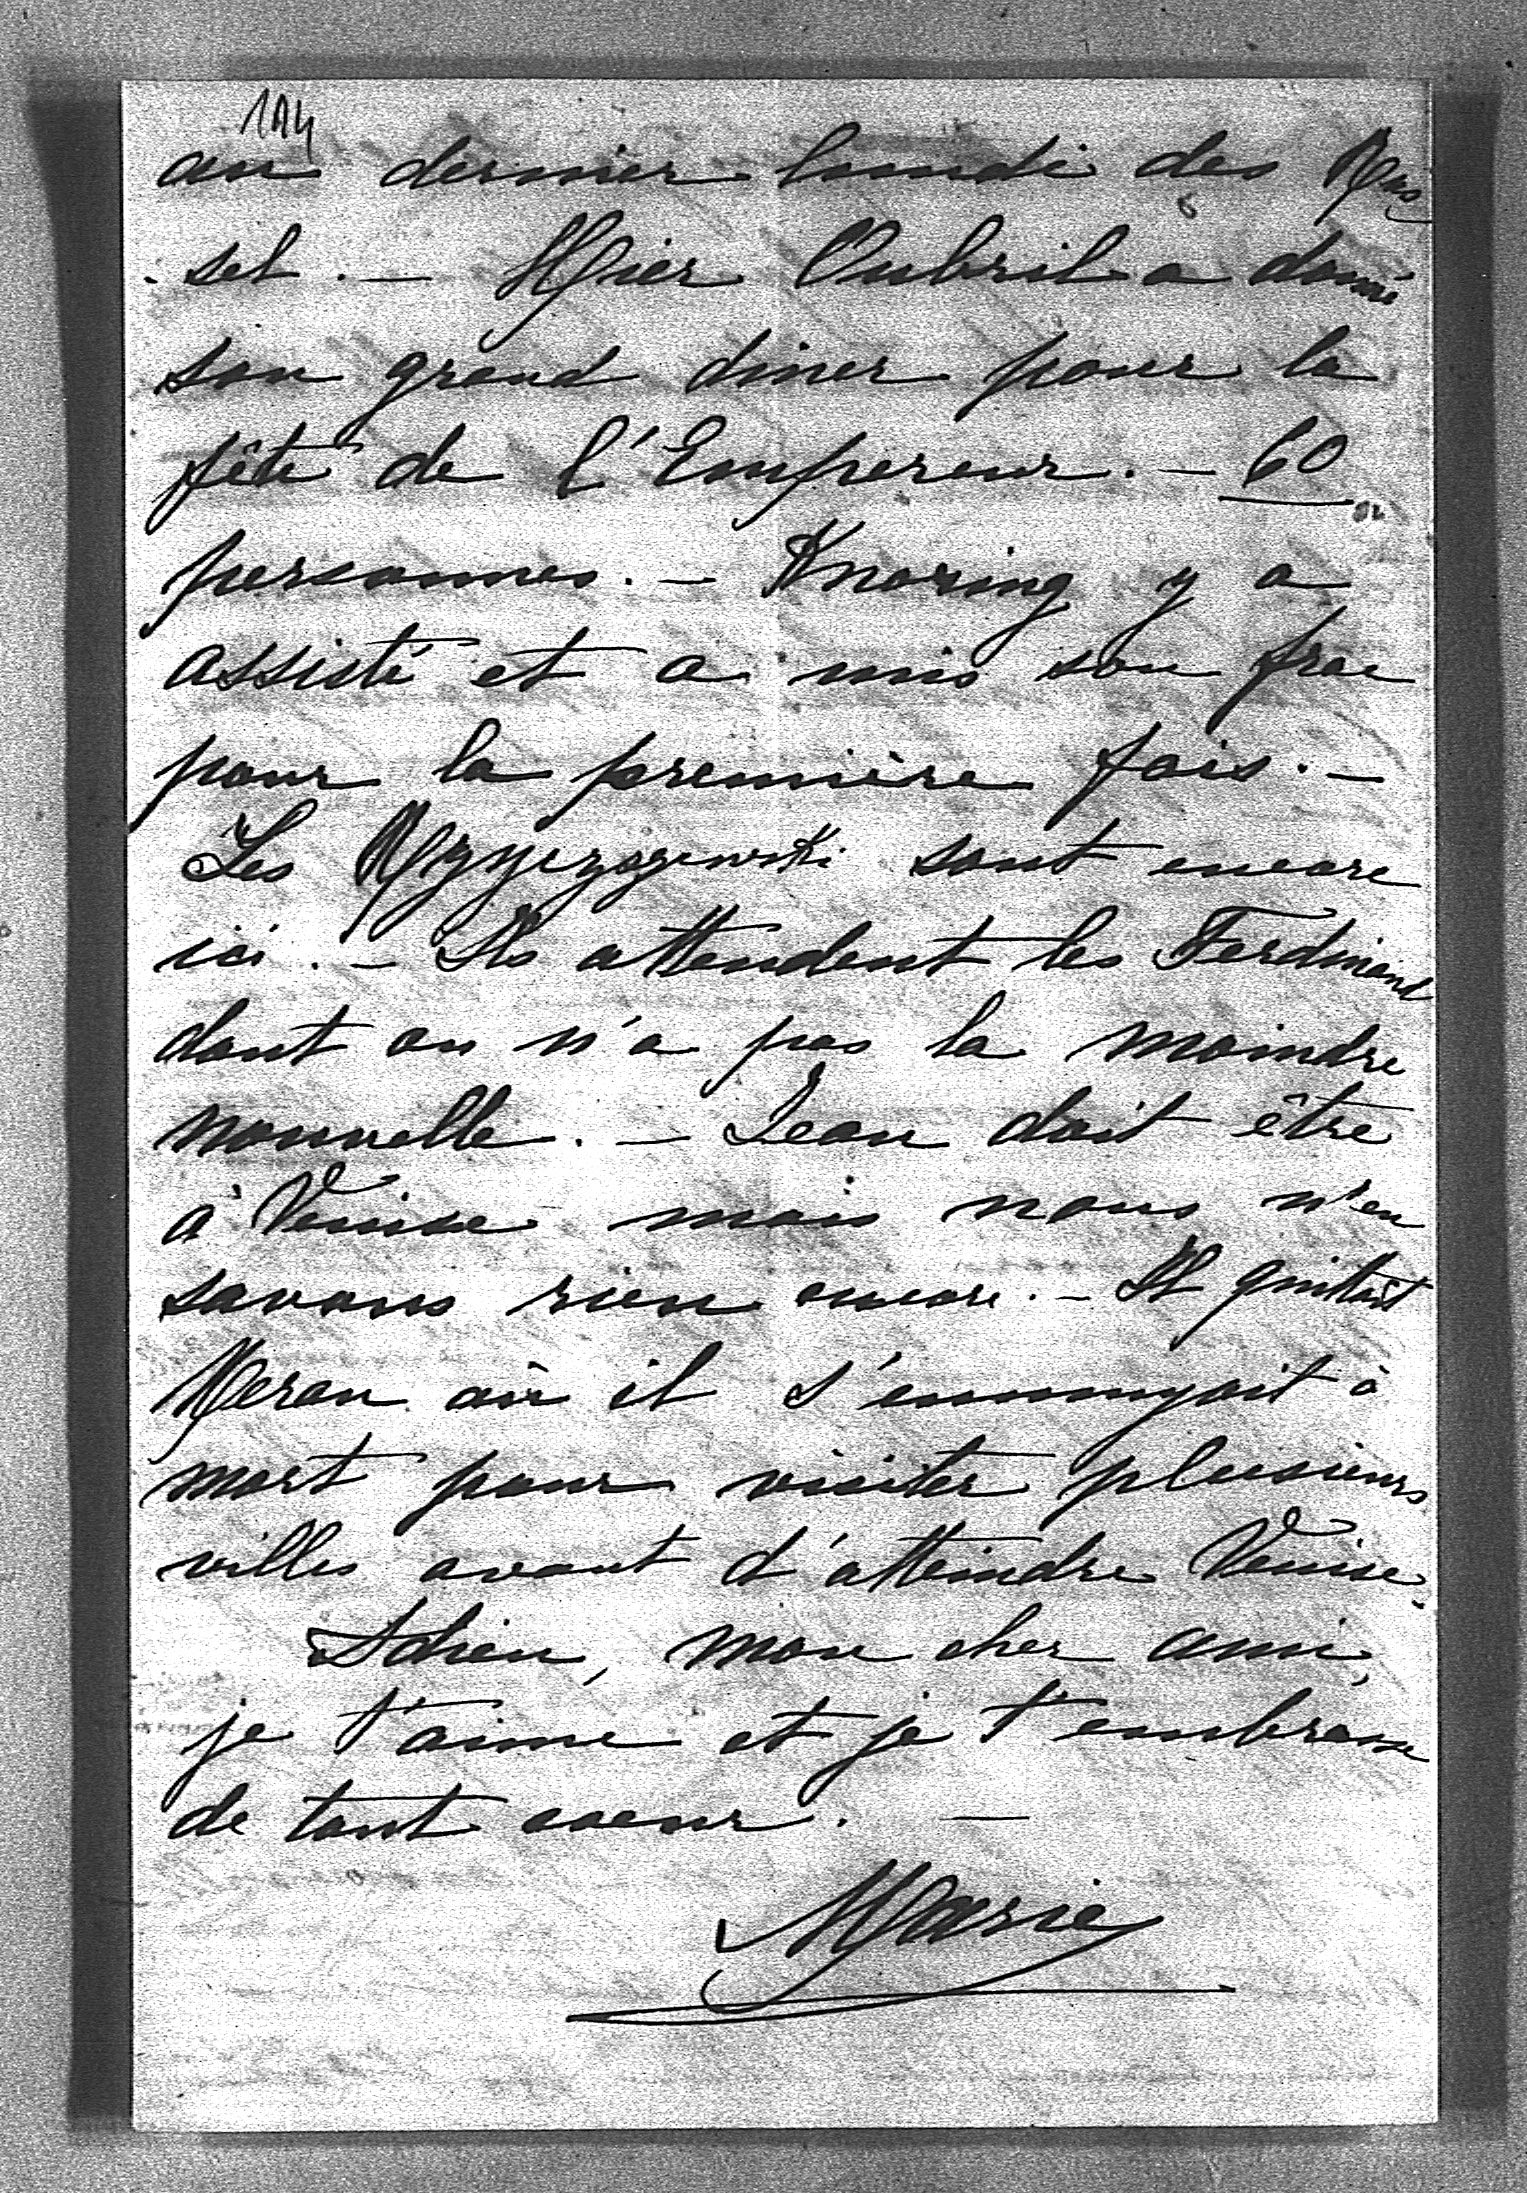 144
au dernier lundi des Rus
sel. — Hier Oubril a donné
son grand diner pour la
fête de l'Empereur. — 60
personnes. — Knoring y a
assisté et a mis son frac
pour la première fois. —
Les sont encore
ici. — Ils attendent les Ferdinand
dont on n'a pas la moindre
nouvelle. — Jean doit être
à Venise mais nous n'en
savons rien encore. — Il quittait
Meran où il s'ennuyait à
mort pour visiter plusieurs
villes avant d'atteindre Venise.
Adieu, mon cher ami,
je t'aime et je t'embrasse
de tout coeur. —
Marie